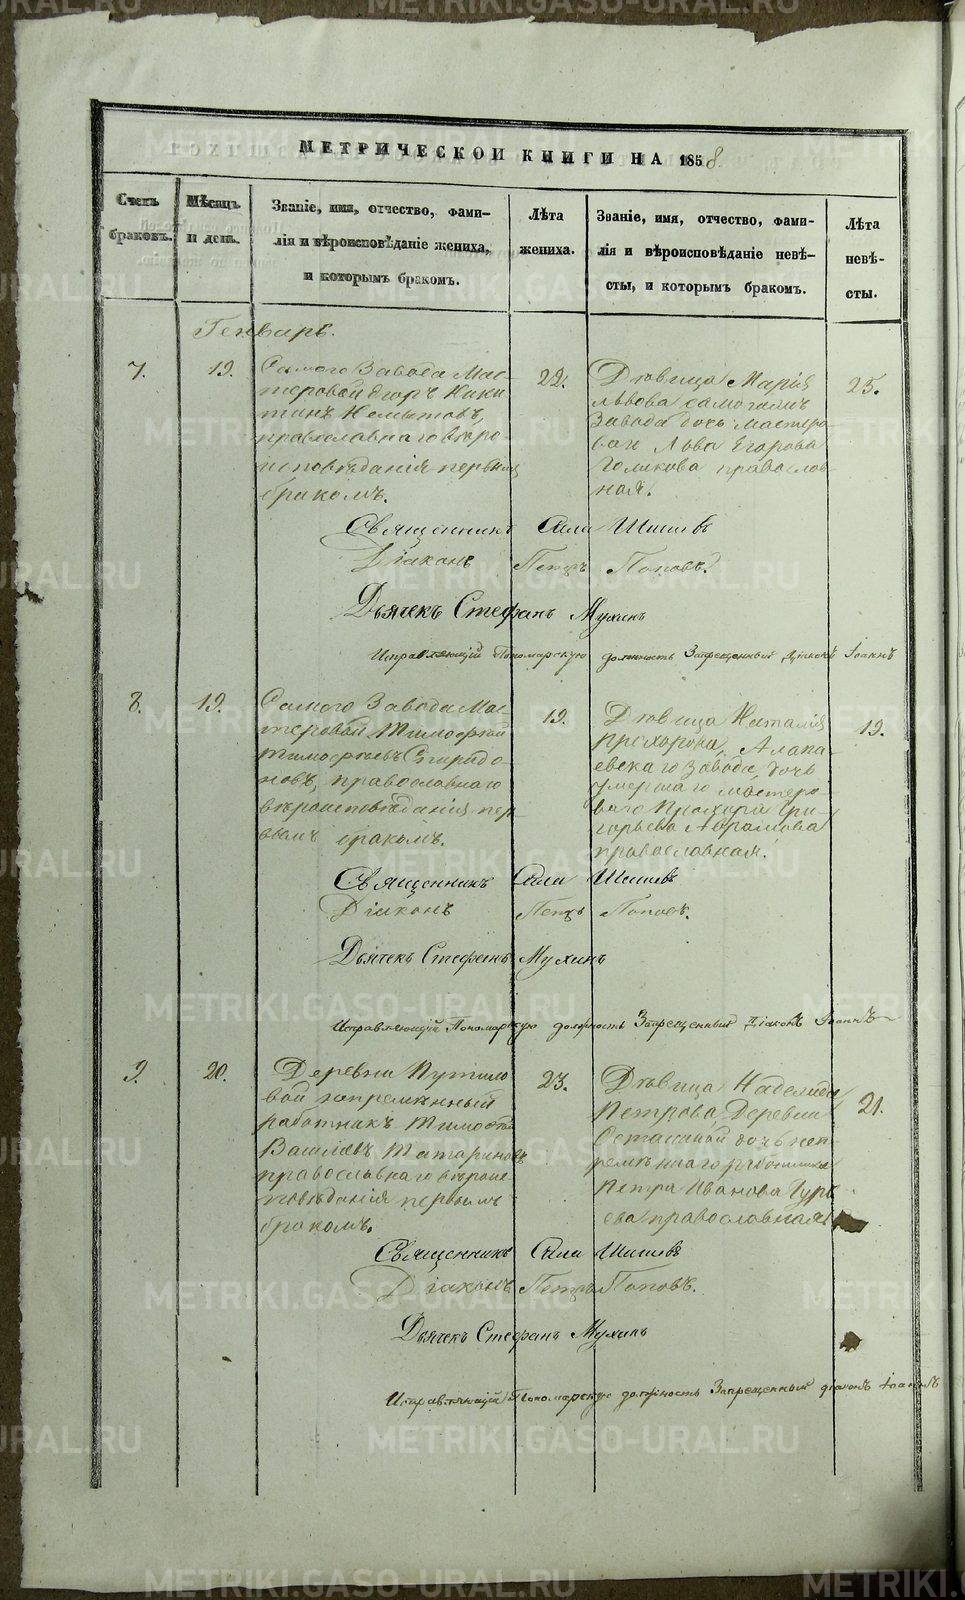 МЕТРИЧЕСКОЙ КНИГИ НА 1858.
Счетъ браковъ.
Мѣсяцъ и день.
Званіе, имя, отчество, фами-
лія и вѣроисповѣданіе жениха,
и которымъ бракомъ.
Лѣта жениха.
Званіе, имя, отчество, фами-
лія и вѣроисповѣданіе невѣ-
сты, и которымъ бракомъ.
Лѣта невѣ-
сты.
Генварь.
7.
19.
Самого Завода Мас-
теровой Егоръ Ники-
тинъ Немытовъ,
православнаго вѣро
исповѣданія первымъ
бракомъ.
22.
Дѣвица Марія
Львова самогожъ
Завода дочь мастеро-
ваго Лва Егорова
Голикова православ-
ная.
25.
Священникъ Сила Шишевъ
Діаконъ Петръ Поповъ.
Дьячекъ Стефанъ Мухинъ
Исправляющій Пономарскую должность Запрещенный Діаконъ Іоаннъ
8.
19.
Самого Завода Мас-
теровой Тимофей
Тимофеевъ Спиридо-
новъ, православнаго
вѣроисповѣданія пер-
вымъ бракомъ.
19.
Дѣвица Наталія
Прохорова, Алапа-
евскаго Завода дочь
умершаго мастеро-
ваго Прохора Гри-
горьева Абрамова
православная.
19.
Священникъ Сила Шишевъ
Діаконъ Петръ Поповъ.
Дьячекъ Стефанъ Мухинъ
Исправляющій Пономарскую должность Запрещенный Діаконъ Іоаннъ
9.
20.
Деревни Путило-
вой непремѣнный
работникъ Тимофей
Васильевъ Татариновъ
православнаго вѣроис-
повѣданія первымъ
бракомъ.
23.
Дѣвица Надежда
Петрова, Деревни
Осташиной дочь неп-
ремѣннаго работника
Петра Иванова Гурь
ева православная.
21.
Священникъ Сила Шишевъ
Діаконъ Петръ Поповъ.
Дьячекъ Стефанъ Мухинъ
Исправляющій Пономарскую должность Запрещенный діаконъ Іоаннъ
METRIKI.GASO-URAL.RU